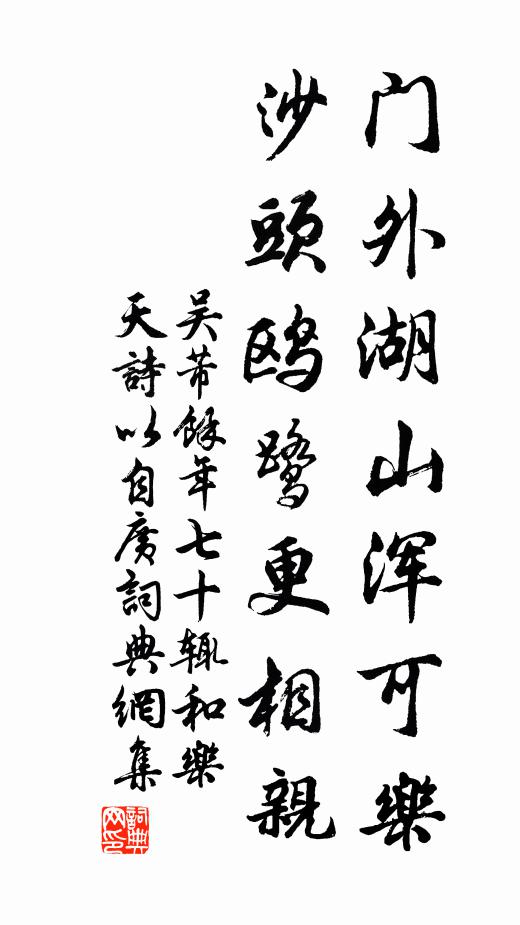 门外湖山浑可樂
沙頭鸥鹭更相親
吴芾餘年七十輒和樂
天詩以自廣詞典網集
詞典网印